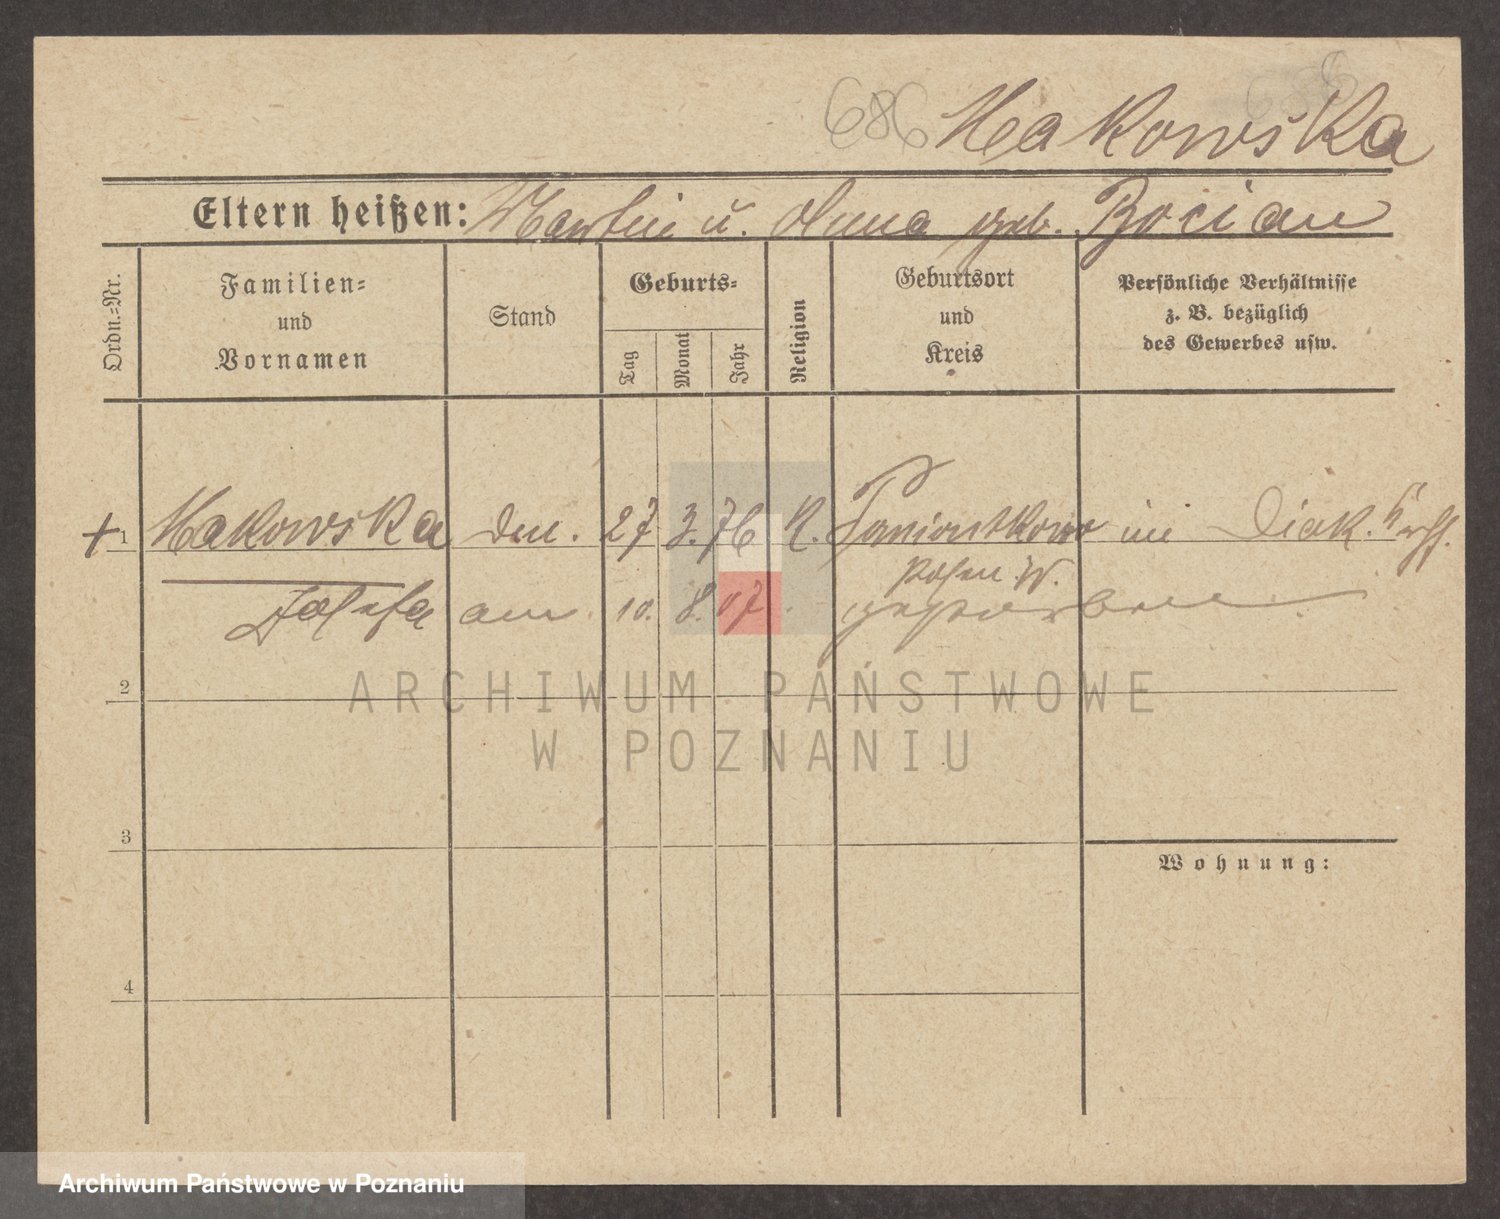 686 Makowska
Eltern heißen: Martin u. Anna geb. Bocian
Ordn.-Nr.
Familien-
und
Vornamen
Stand
Geburts-
Tag
Monat
Jahr
Religion
Geburtsort
und
Kreis
Persönliche Verhältnisse
z. B. bezüglich
des Gewerbes usw.
+ 1 Makowska 27 3. 76 K. im Diak.
Posen W.
Josefa am 10. 8. 07 gestorben.
ARCHIWUM PAŃSTWOWE
2
W POZNANIU
3
Wohnung:
4
Archiwum Państwowe w Poznaniu